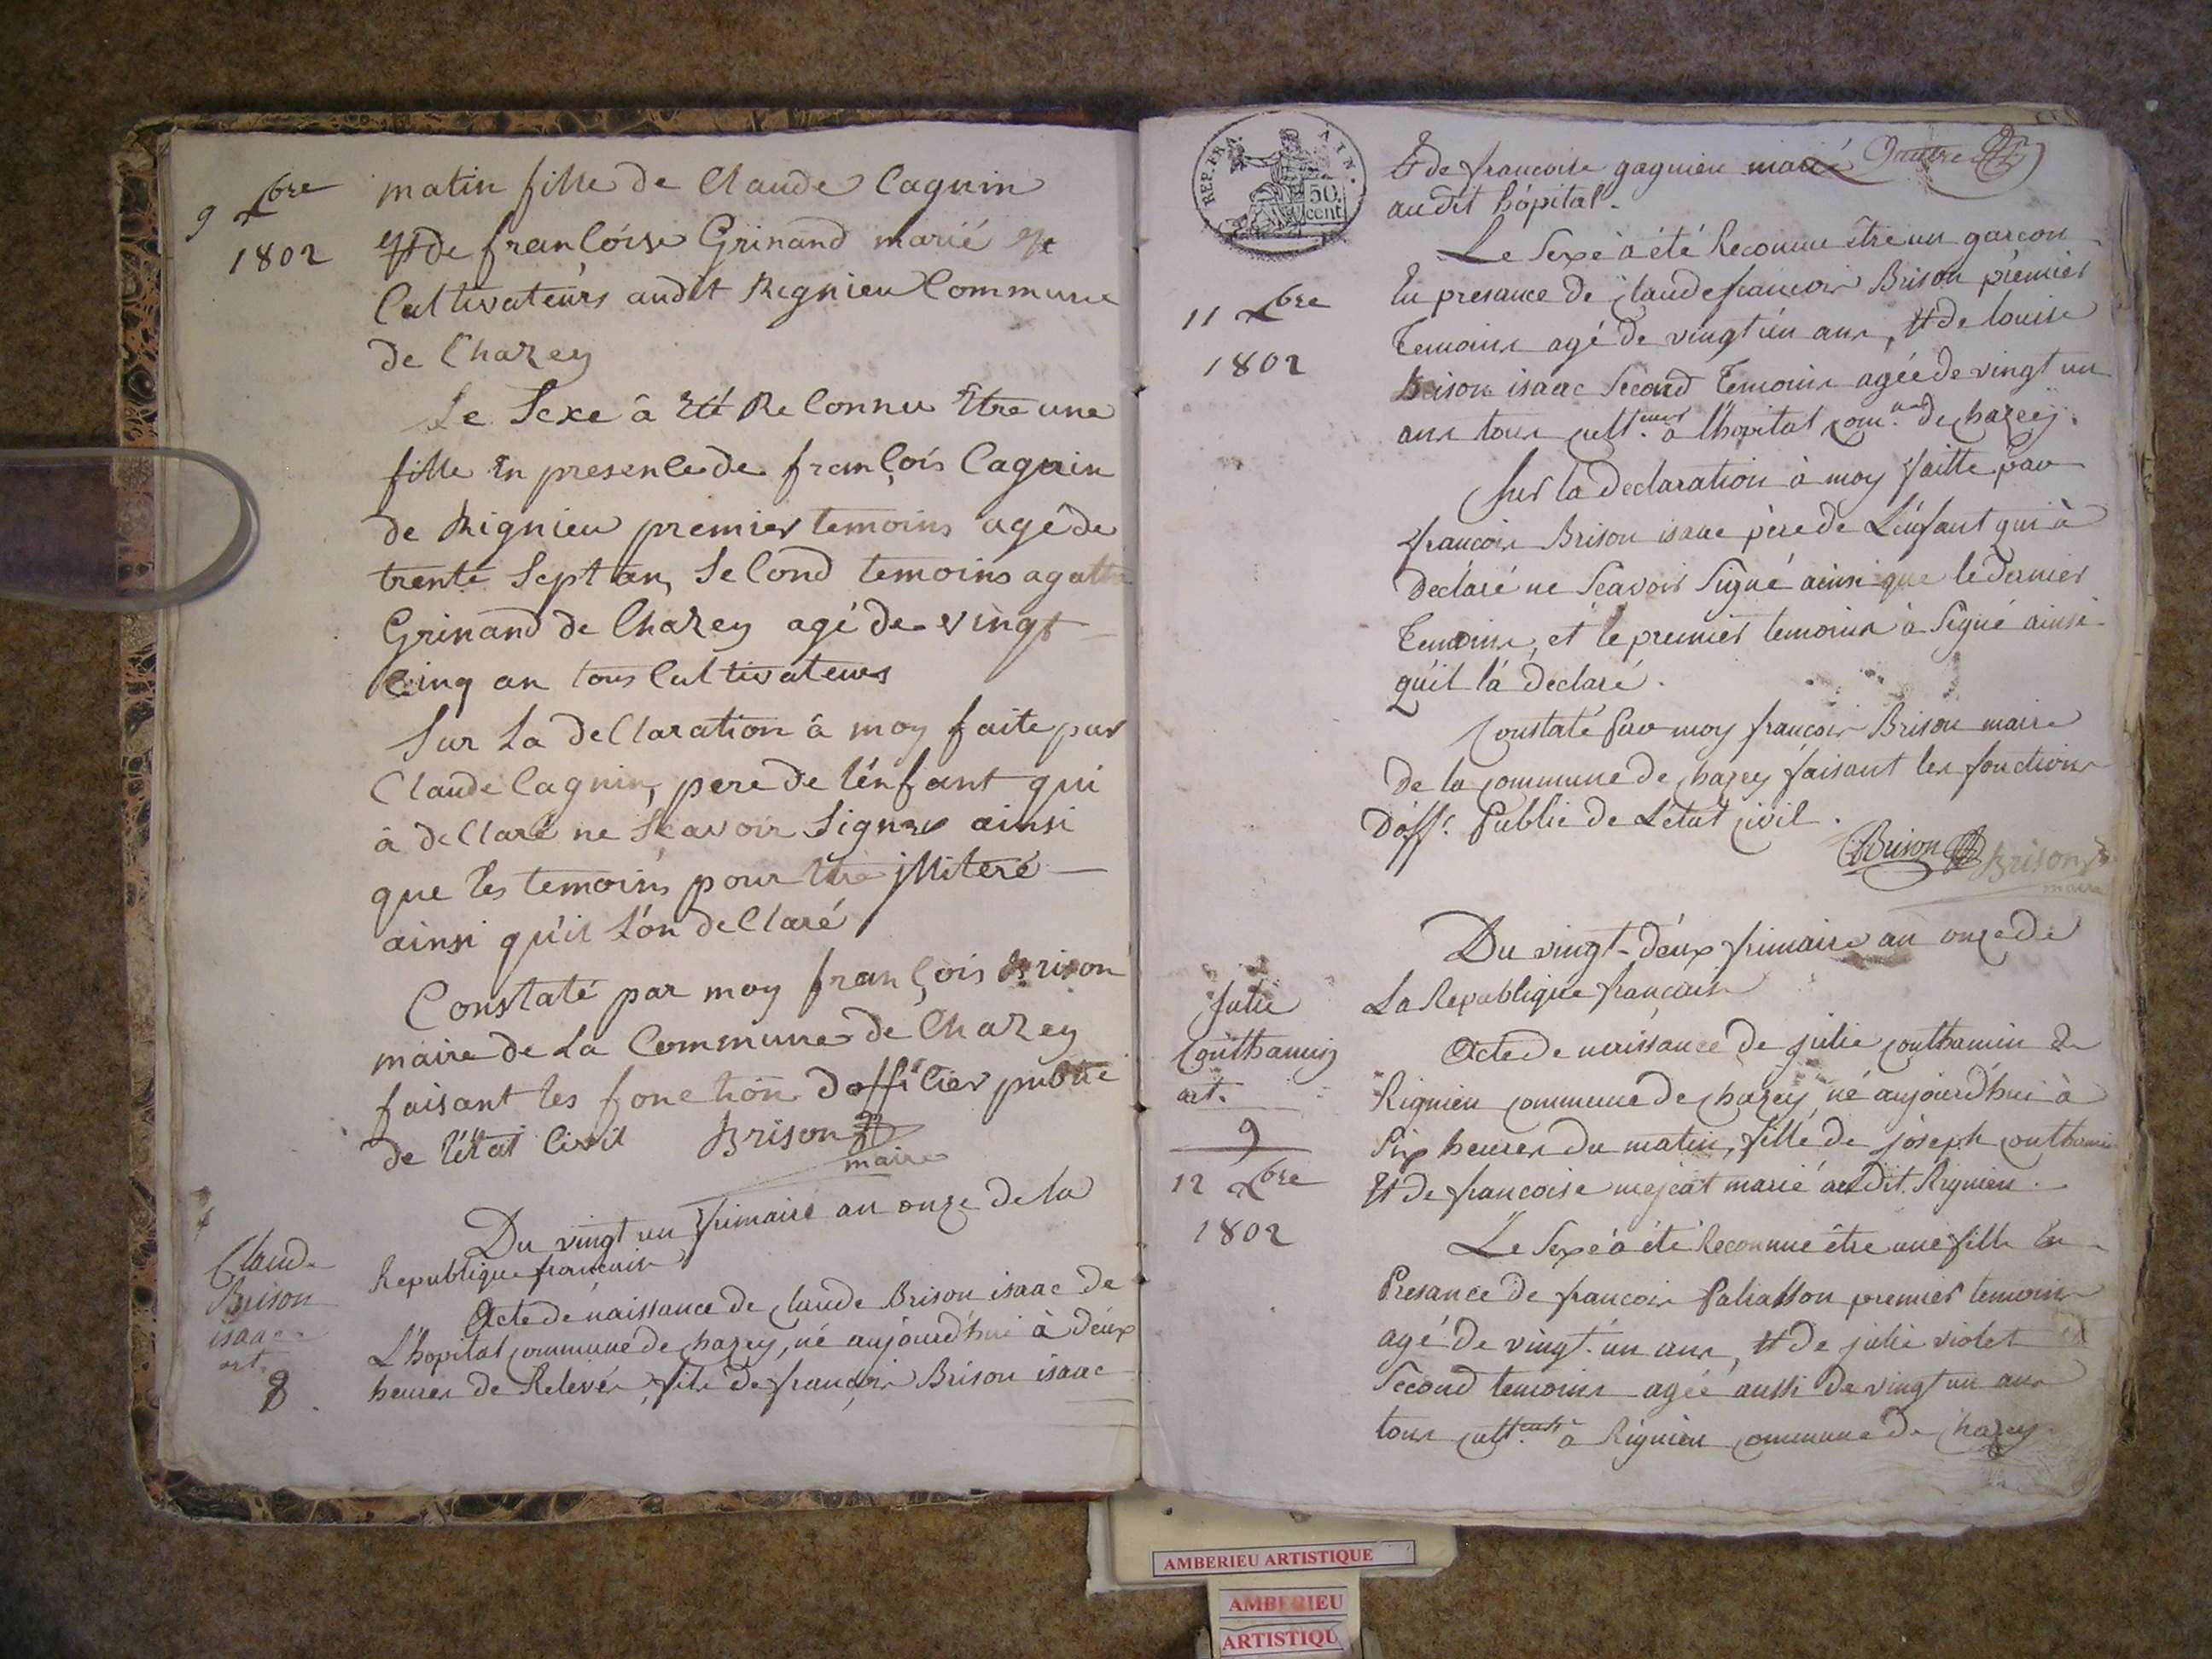 9 Xbre
1802
matin fille de Claude Cagnin
Et de françoise Grinand marié Et
Cultivateurs audit Rignieu Commune
de Chazey
Le Sexe à Eté Reconnu Etre une
fille En presence de françois Cagnin
de Rignieu premier temoins agé de
trente Sept an, Second temoins agathe
Grinand de Chazey agé de vingt
Cinq an tous Cultivateurs
Sur La declaration à moy faite par
Claude Cagnin, pere de l'énfant qui
à declaré ne Scavoir Signer ainsi
que les temoins pour Etre illiteré
ainsi qu'il L'on declaré
Constaté par moy françois Brison
maire de La Commune de Chazey
faisant les fonction dofficier public
de l'état Civil Brison
maire
Claude
Brison
isaac
art.
8.
Du vingt un frimaire an onze de la
Republique francaise
Acte de naissance de Claude Brison isaac de
L'hopital commune de chazey, né aujourd'hui à deux
heures de Relevée, fils de françois Brison isaac
REP. FRA.
AIN.
50.
cent.
Et de francoise gagnieu marié
audit hôpital.
11 Xbre
1802
Le Sexe à été Reconnu être un garcon
En presance de Claude francois Brison premier
Temoins agé de vingt un ans, Et de louise
Brison isaac Second Temoins agée de vingt un
ans tous cult.eurs à l'hopital com.ne de chazey.
Sur la declaration à moy faitte par
francois Brison isaac père de L'enfant qui à
declaré ne Scavoir Signé ainsi que le dernier
Temoins, et le premier temoins à Signé ainsi
qu'il l'à déclaré.
Constaté Par moy francois Brison maire
de la commune de chazey faisant les fonctions
D'off.r Public de L'etat civil.
CBrison Brison
maire
Julie
Conthamin
art.
9
12 Xbre
1802
Du vingt-deux frimaire an onze de
La Republique francaise
Acte de naissance de julie conthamin de
Rignieu commune de chazey, né aujourd'hui à
Six heures du matin, fille de joseph conthamin
Et de francoise mejeat marié au dit Rignieu.
Le Sexe à été Reconnue être une fille En
Presance de francois Paliasson premier temoins
agé de vingt-un ans, Et de julie violet
Second temoins agée aussi de vingt un ans
tous cult.eurs à Rignieu commune de chazey
AMBERIEU ARTISTIQUE
AMBERIEU
ARTISTIQU